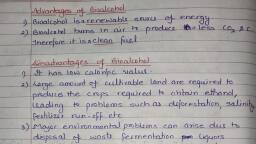 Advantages of Bioalcohol
1) Bioalcohol is a renewable source of energy
2) Bioalcohol burns in air to produce less CO2 & C
therefore it is a clean fuel
Disadvantages of Bioalcohol
1) It has low calorific value
2) Large amount of cultivable land are required to
produce the crops required to obtain ethanol,
leading to problems such as deforestation, salinity
fertilizer run-off etc
3) Major environmental problems can arise due to
disposal of waste fermentation liquors